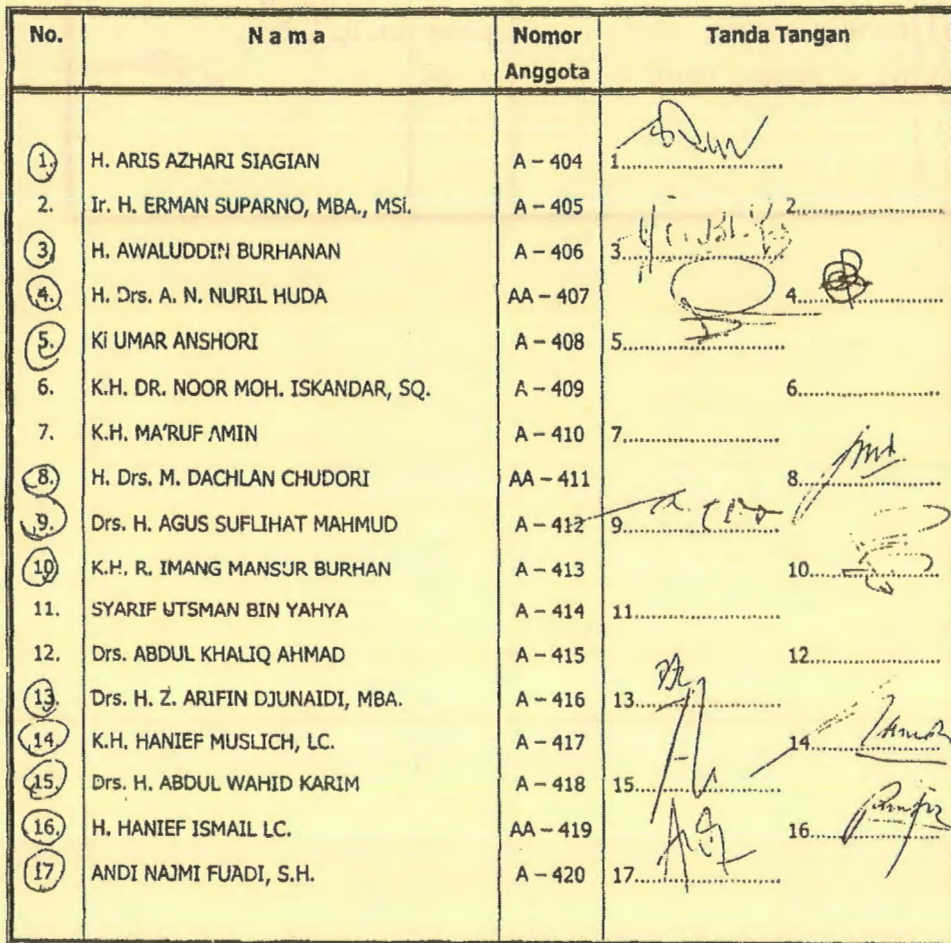 No. N a m a Nomor Anggota Tanda Tangan
1. H. ARIS AZHARI SIAGIAN A – 404 1
2. Ir. H. ERMAN SUPARNO, MBA., MSi. A – 405 2
3. H. AWALUDDIN BURHANAN A – 406 3
4. H. Drs. A. N. NURIL HUDA AA – 407 4
5. Ki UMAR ANSHORI A – 408 5
6. K.H. DR. NOOR MOH. ISKANDAR, SQ. A – 409 6
7. K.H. MA'RUF AMIN A – 410 7
8. H. Drs. M. DACHLAN CHUDORI AA – 411 8
9. Drs. H. AGUS SUFLIHAT MAHMUD A – 412 9
10 K.H. R. IMANG MANSUR BURHAN A – 413 10
11. SYARIF UTSMAN BIN YAHYA A – 414 11
12. Drs. ABDUL KHALIQ AHMAD A – 415 12
13. Drs. H. Z. ARIFIN DJUNAIDI, MBA. A – 416 13
14. K.H. HANIEF MUSLICH, LC. A – 417 14
15. Drs. H. ABDUL WAHID KARIM A – 418 15
16. H. HANIEF ISMAIL LC. AA – 419 16
17 ANDI NAJMI FUADI, S.H. A – 420 17